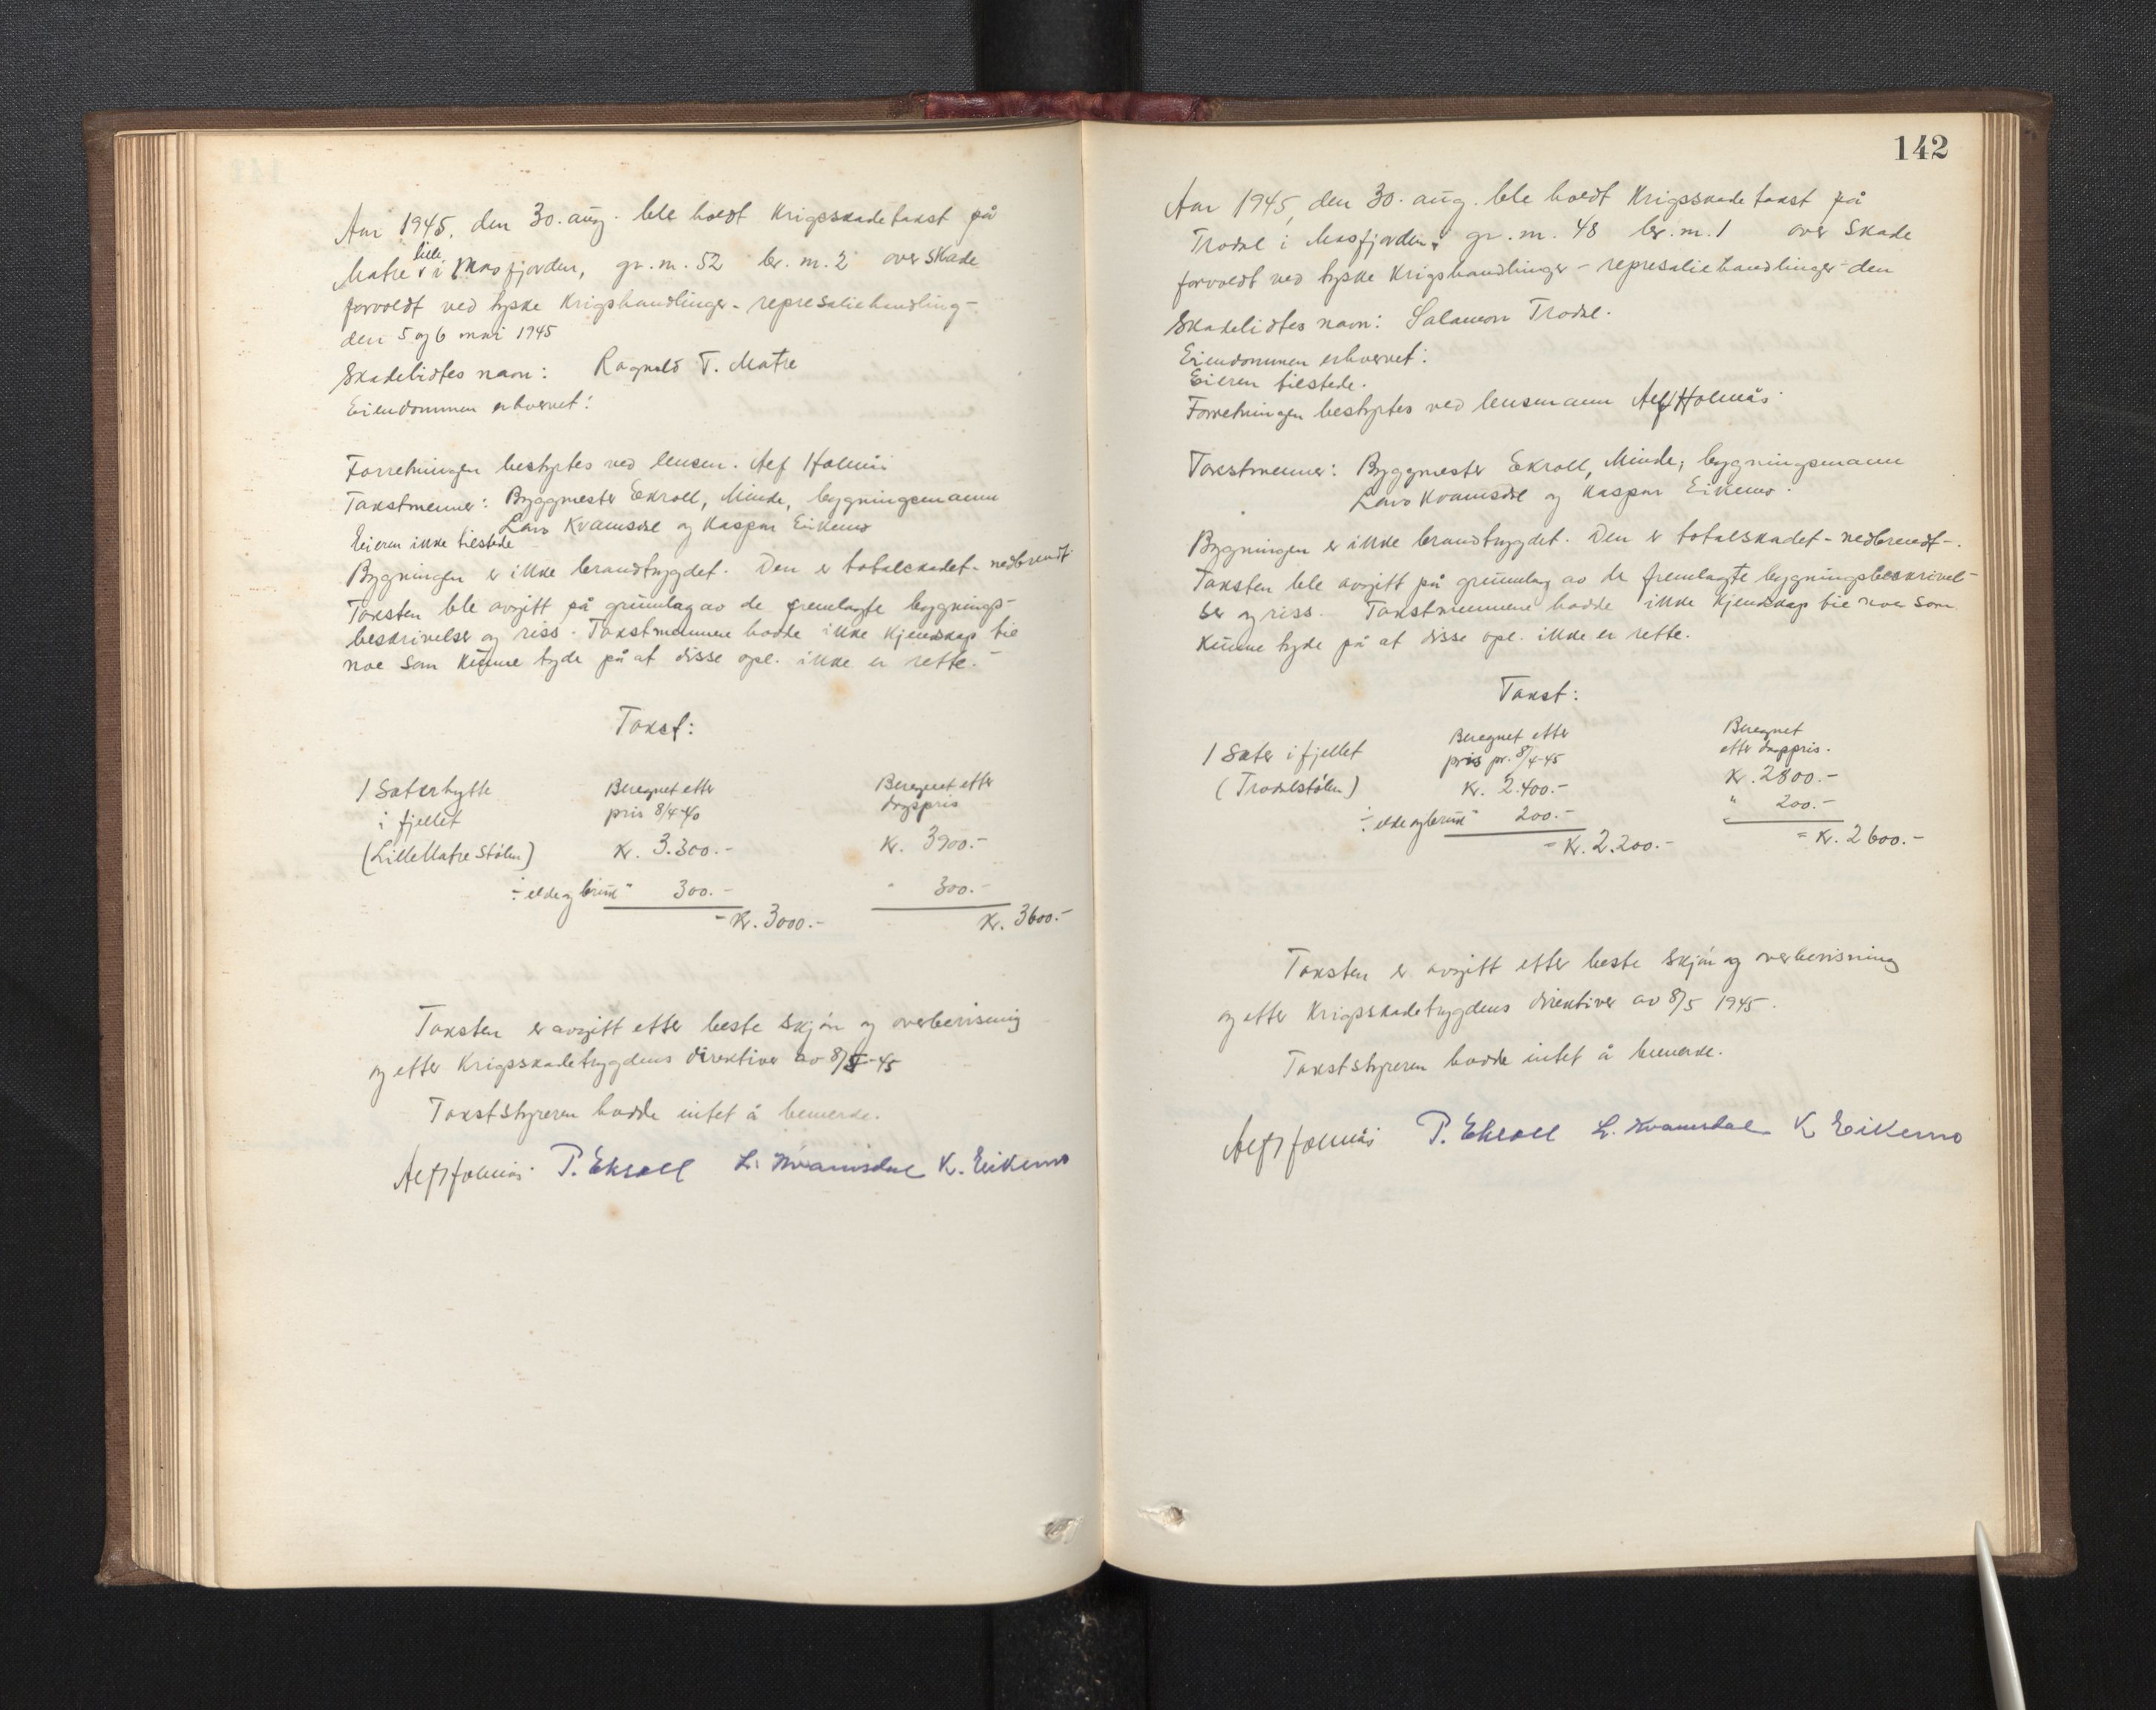 Aar 1945, den 30. aug. ble holdt Krigsskadetakst på
lille
Matre i Masfjorden, gr. nr. 52 br. nr. 2 over skade
forvoldt ved tyske Krigshandlinger - represaliehandling -
den 5 og 6 mai 1945
Skadelidtes navn: Ragnald T. Matre
Eiendommen erhvervet:
Forretningen bestyrtes ved lensm. Alf Holmås
Takstmenner: Byggmester Ekroll, Minde, bygningsmann
Lars Kvamsdal og Kaspar Eikemo
Eieren ikke tilstede
Bygningen er ikke brandtrygdet. Den er totalskadet - nedbrendt
Taksten ble avgitt på grunnlag av de fremlagte bygnings-
beskrivelser og riss. Takstmennene hadde ikke kjendskap til
noe som kunne tyde på at disse opl. ikke er rette. -
Takst:
1 Sæterhytte Beregnet etter Beregnet etter
i fjellet pris 8/4-40 dagspris
(Lille Matre Stølen) Kr. 3.300.- Kr. 3900.-
÷ elde og bruk " 300.- " 300.-
- Kr. 3000.- Kr. 3600.-
Taksten er avgitt etter beste skjøn og overbevisning
og etter Krigsskadetrygdens direktiver av 8/5-45
Takststyreren hadde intet å bemerke.
Alf Holmås P. Ekroll L. Kvamsdal K. Eikemo
142
Aar 1945, den 30. aug. ble holdt Krigsskadetakst på
Trodal i Masfjorden, gr. nr. 48 br. nr. 1 over skade
forvoldt ved tyske Krigshandlinger - represaliehandlinger - den
Skadelidtes navn: Salamon Trodal.
Eiendommen erhvervet:
Eieren tilstede.
Forretningen bestyrtes ved lensmann Alf Holmås
Takstmenner: Byggmester Ekroll, Minde, bygningsmann
Lars Kvamsdal og Kaspar Eikemo.
Bygningen er ikke brandtrygdet. Den er totalskadet - nedbrendt -.
Taksten ble avgitt på grunnlag av de fremlagte bygningsbeskrivel-
ser og riss. Takstmennene hadde ikke kjendskap til noe som
kunne tyde på at disse opl. ikke er rette.
Takst:
1 Sæter i fjellet Beregnet etter Beregnet
pris pr. 8/4-45 etter dagspris.
(Trodalstølen) Kr. 2.400.- Kr. 2800.-
÷ elde og bruk " 200.- " 200.-
- Kr. 2.200.- = Kr. 2600.-
Taksten er avgitt etter beste skjøn og overbevisning
og etter Krigsskadetrygdens direktiver av 8/5 1945.
Takststyreren hadde intet å bemerke.
Alf Holmås P. Ekroll L. Kvamsdal K. Eikemo